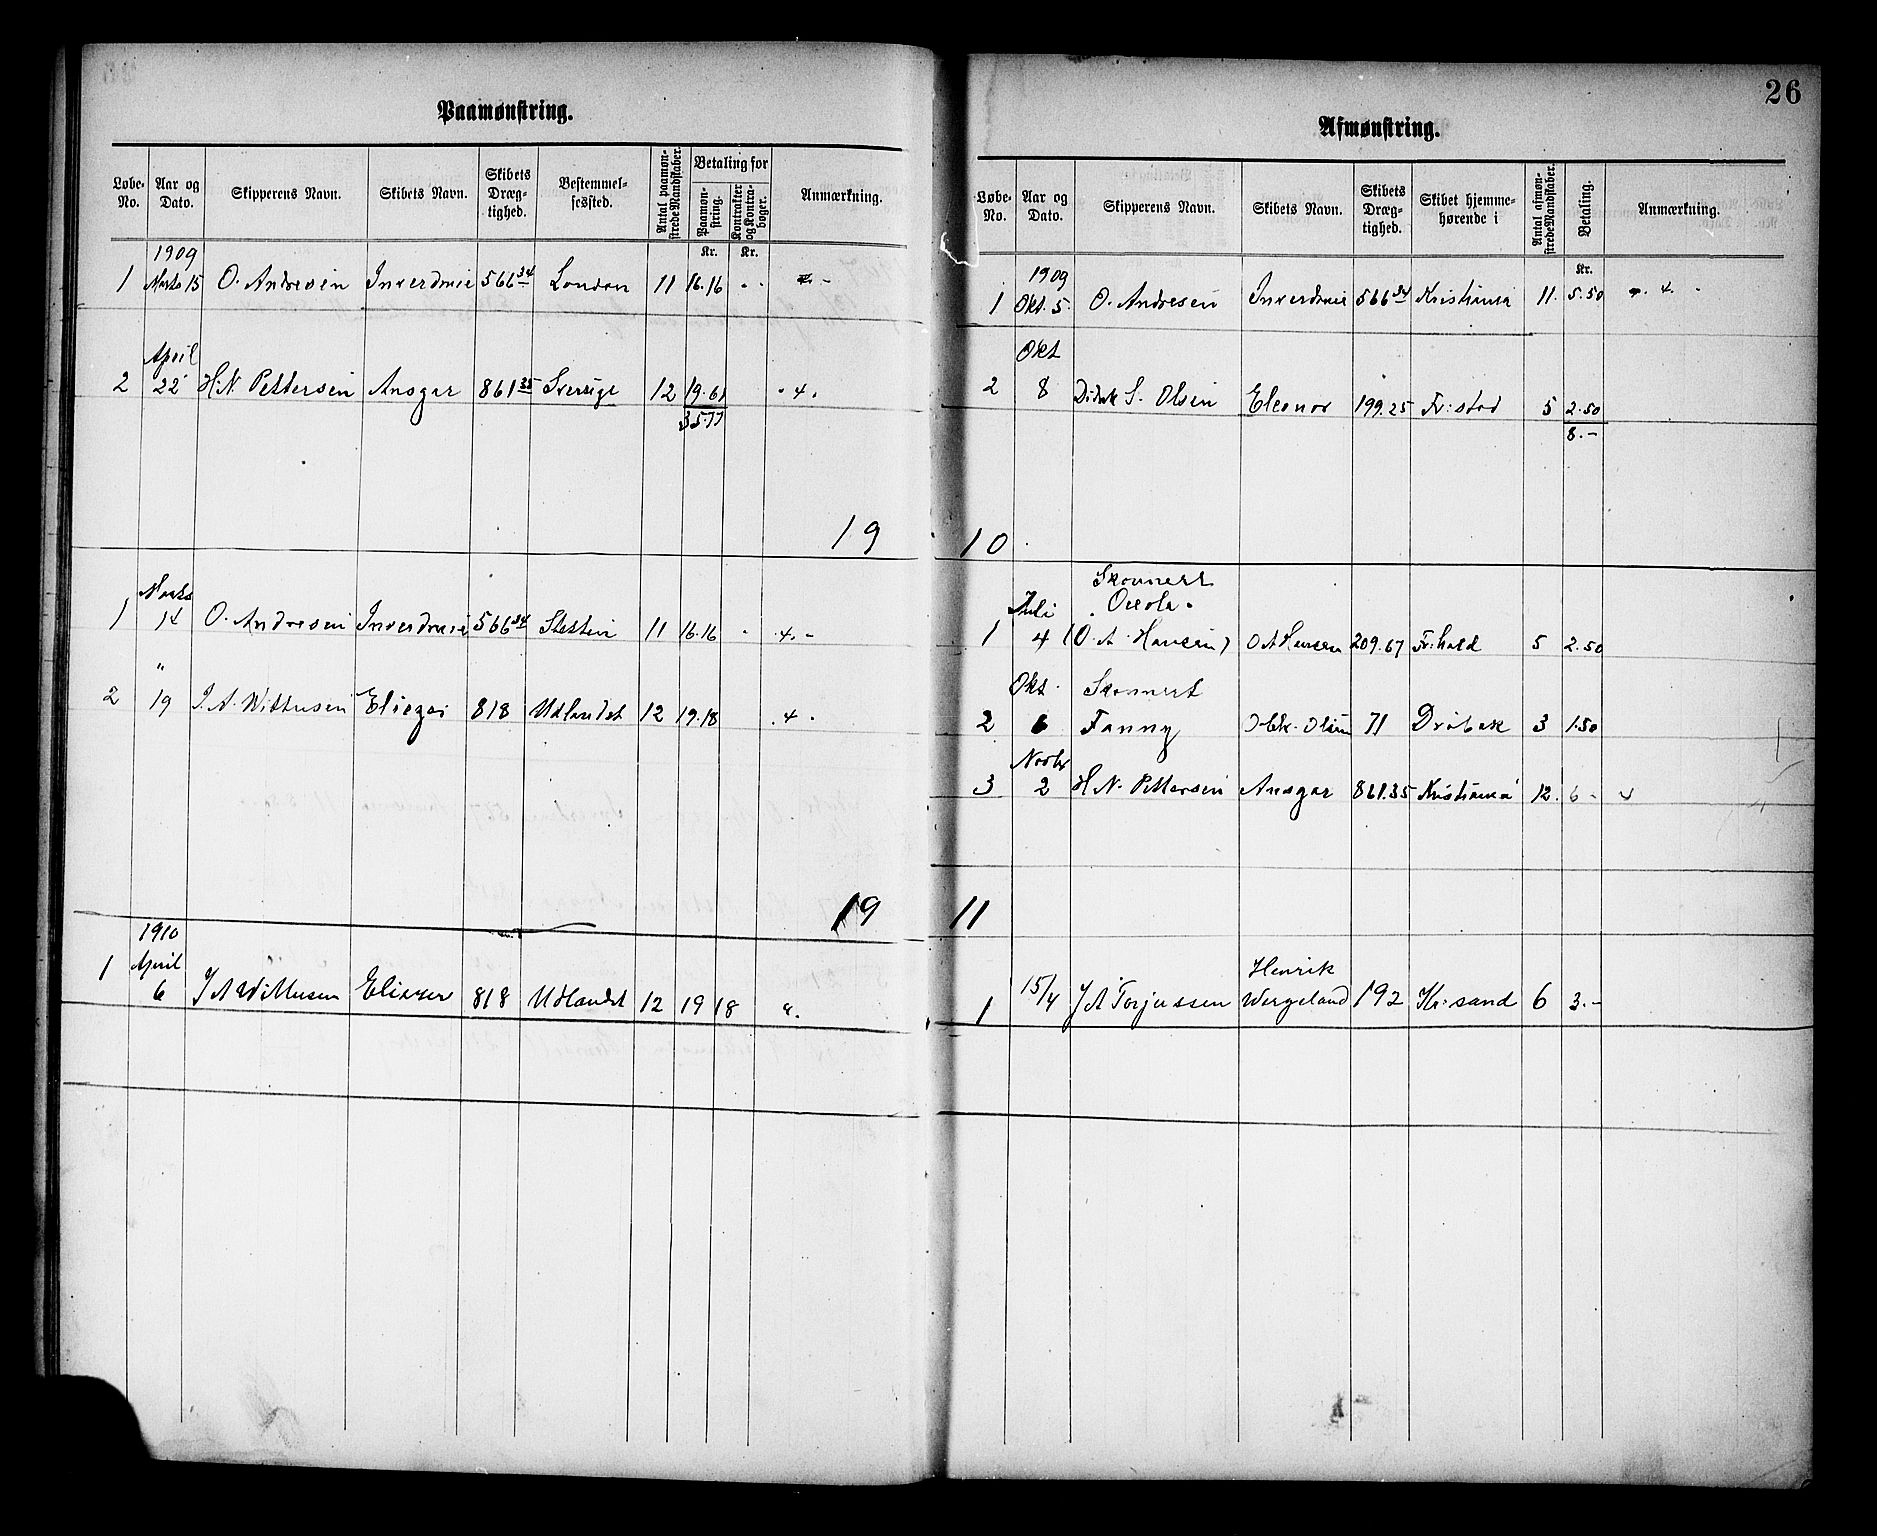 Paamønstring.
Løbe-No. Aar og Dato. Skipperens Navn. Skibets Navn. Skibets Dræg-tighed. Bestemmel-sessted. Antal paamøn-strede Mandskaber. Betaling for Paamøn-string. Kontrakter og Kontra-bøger. Anmærkning.
Kr. Kr.
1909
1 Marts 15 O. Andresen Inverdruie 566 34 London 11 16.16
April
2 22 H.N. Pettersen Ansgar 861 35 Sverige 12 19.61 4.
35.77
19
Marts
1 14 O. Andresen Inverdruie 566 34 Stettin 11 16.16 4.
"
2 19 J. A. Witthusen Eliezer 818 Udlandet 12 19.18 4.
19
1910
1 April
6 J A Witthusen Eliezer 818 Udlandet 12 19 18
26
Afmønstring.
Løbe-No. Aar og Dato. Skipperens Navn. Skibets Navn. Skibets Dræg-tighed. Skibet hjemme-hørende i Antal afmøn-strede Mandskaber. Betaling. Anmærkning.
Kr.
1909
1 Okt. 5. O. Andresen Inverdruie 566 34 Kristiania 11. 5.50 4.
Okt
2 8 Didrik S. Olsen Eleonor 199.25 Fr:stad 5 2.50
8.-
10
Skonnert
Juli
1 4 (O. A. Hansen) O A Hansen 209.67 Fr:hald 5 2.50
Okt. Skonnert
2 6 Fanny Olsen 71 Drøbak 3 1.50
Novbr
3 2 H N. Pettersen Ansgar 861.35 Kristiania 12. 6 - 4
11
Henrik
1 15/4 J A Torjussen Wergeland 192 Kr:sand 6 3.-